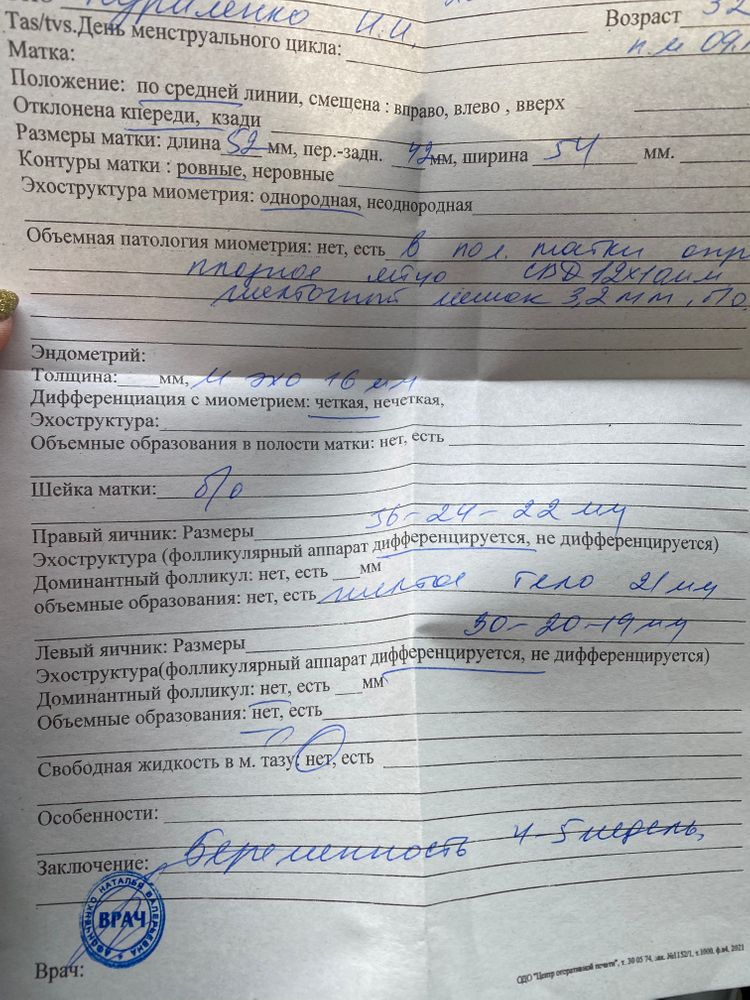 Куриленко И.И. Возраст 32
Tas/tvs.День менструального цикла: п.м 09.
Матка:
Положение: по средней линии, смещена : вправо, влево , вверх
Отклонена кпереди, кзади
Размеры матки: длина 52 мм, пер.-задн. 42 мм, ширина 54 мм.
Контуры матки : ровные, неровные
Эхоструктура миометрия: однородная, неоднородная
Объемная патология миометрия: нет, есть В пол. матки опр
плодное яйцо СВД 12х10мм
желточный мешок 3,2 мм, б/о
Эндометрий:
Толщина:____мм, М эхо 16 мм
Дифференциация с миометрием: четкая, нечеткая,
Эхоструктура:
Объемные образования в полости матки: нет, есть
Шейка матки: б/о
Правый яичник: Размеры 36-24-22 мм
Эхоструктура (фолликулярный аппарат дифференцируется, не дифференцируется)
Доминантный фолликул: нет, есть ___мм
объемные образования: нет, есть желтое тело 21 мм
Левый яичник: Размеры 30-20-19 мм
Эхоструктура(фолликулярный аппарат дифференцируется, не дифференцируется)
Доминантный фолликул: нет, есть ___мм
Объемные образования: нет, есть
Свободная жидкость в м. тазу: нет, есть
Особенности:
Заключение: Беременность 4-5 недель,
ВРАЧ
НАТАЛЬЯ ВАЛЕРЬЕВНА
Врач:
ОДО "Центр оперативной печати", т. 30 05 74, зак. №1152/1, т.1000, ф.а4, 2021